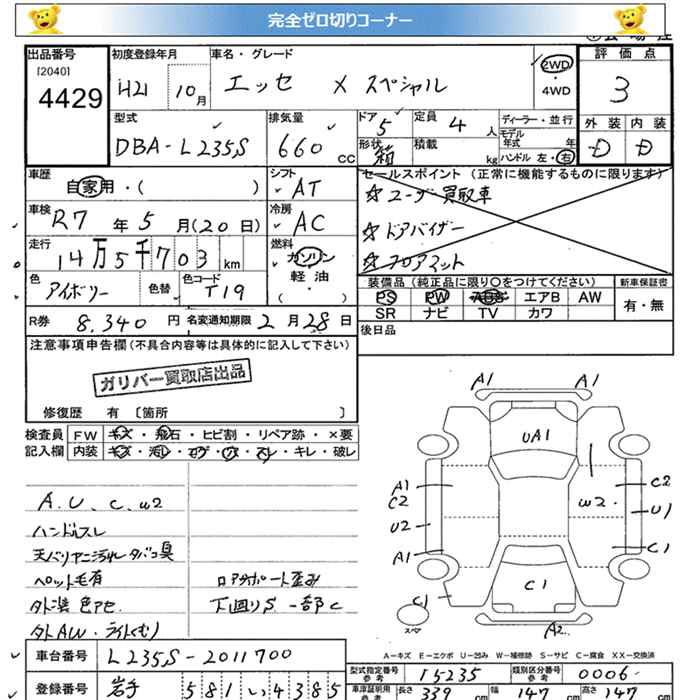 完全ゼロ切りコーナー
出品番号 [2040] 4429
初度登録年月 H21 10月
車名・グレード エッセ メスペシャル
2WD ・ 4WD
評価点 3
外装 D 内装 D
型式 DBA-L235S
排気量 660 cc
ドア 5 定員 4人
形状 箱 積載 kg
ディーラー・並行
モデル年式 年
ハンドル 左・右
車歴 自家用・( )
シフト AT
セールスポイント (正常に機能するものに限ります)
☆ユーザー買取車
☆ドアバイザー
☆フロアマット
車検 R7年5月(20日)
冷房 AC
走行 14万5千703km
燃料 ガソリン 軽油 ・ ( )
色 アイボリー 色替 色コード T19
装備品 (純正品に限り○をつけてください)
PS PW エアB AW
SR ナビ TV カワ
新車保証書 有・無
R券 8,340円 名変通知期限 2月28日
後日品
注意事項申告欄(不具合内容等は具体的に記入して下さい)
ガリバー買取店出品
修復歴 有 〔箇所 〕
検査員記入欄
FW キズ・飛石・ヒビ割・リペア跡・×要
内装 キズ・汚レ・コゲ・穴・スレ・キレ・破レ
A.U.C.W2
ハンドルスレ
天バリヤニ汚レタバコ臭
ペット毛有
外装色アセ
外AW・ライトくもり
コアサポート歪み
下回りS 一部C
A1 A1
UA1
A1 C2 U2 A1 C1
W2 C2 U1 C1
C1
A2
スペア
A-キズ E-エクボ U-凹み W-補修跡 S-サビ C-腐食 XX-交換済
車台番号 L235S-2011700
型式指定番号 参考 15235 類別区分番号 参考 0006
登録番号 岩手 581 い 4385
車庫証明用 参考 長さ 339 cm 幅 147 cm 高さ 147 cm